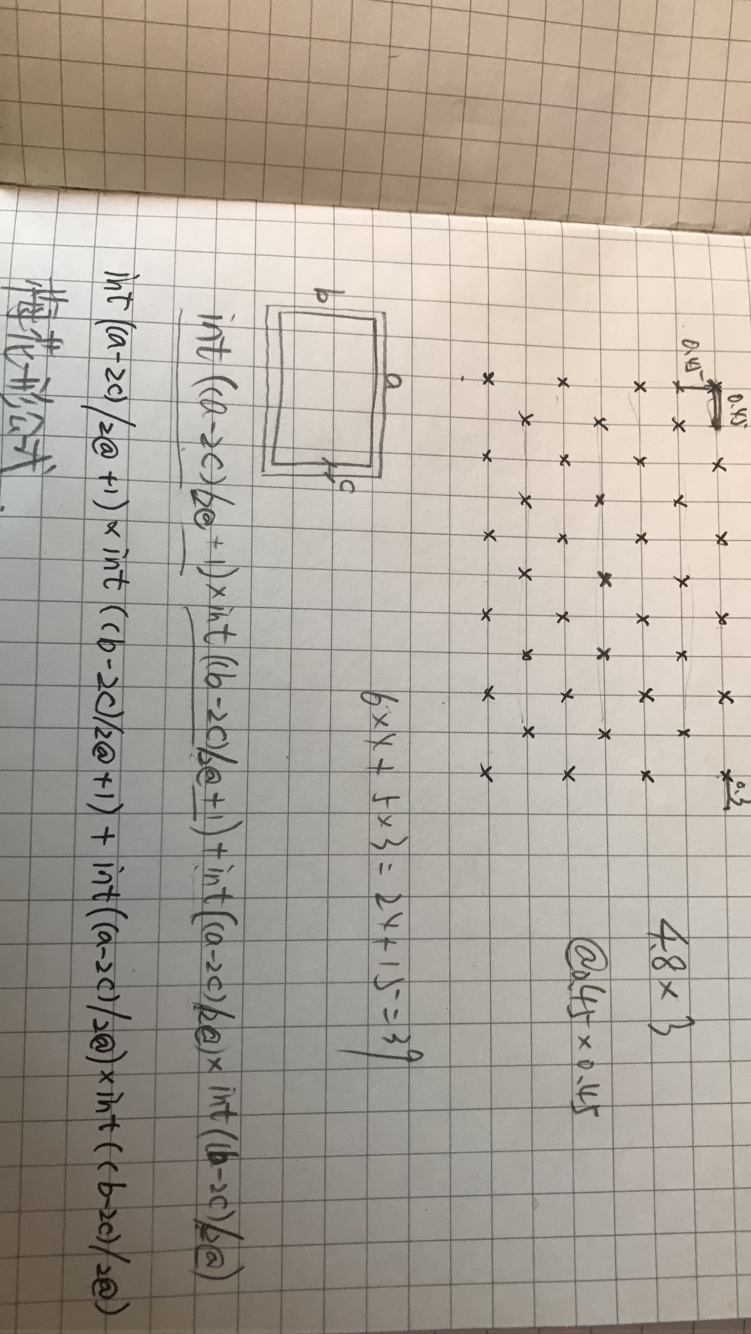 0.45
0.3
0.45
4.8×3
@0.45×0.45
6×4+5×3=24+15=39
a
b
c
int((a-2c)/2@+1)×int((b-2c)/2@+1)+int((a-2c)/2@)×int((b-2c)/2@)
int((a-2c)/2@+1)×int((b-2c)/2@+1)+int((a-2c)/2@)×int((b-2c)/2@)
梅花形公式